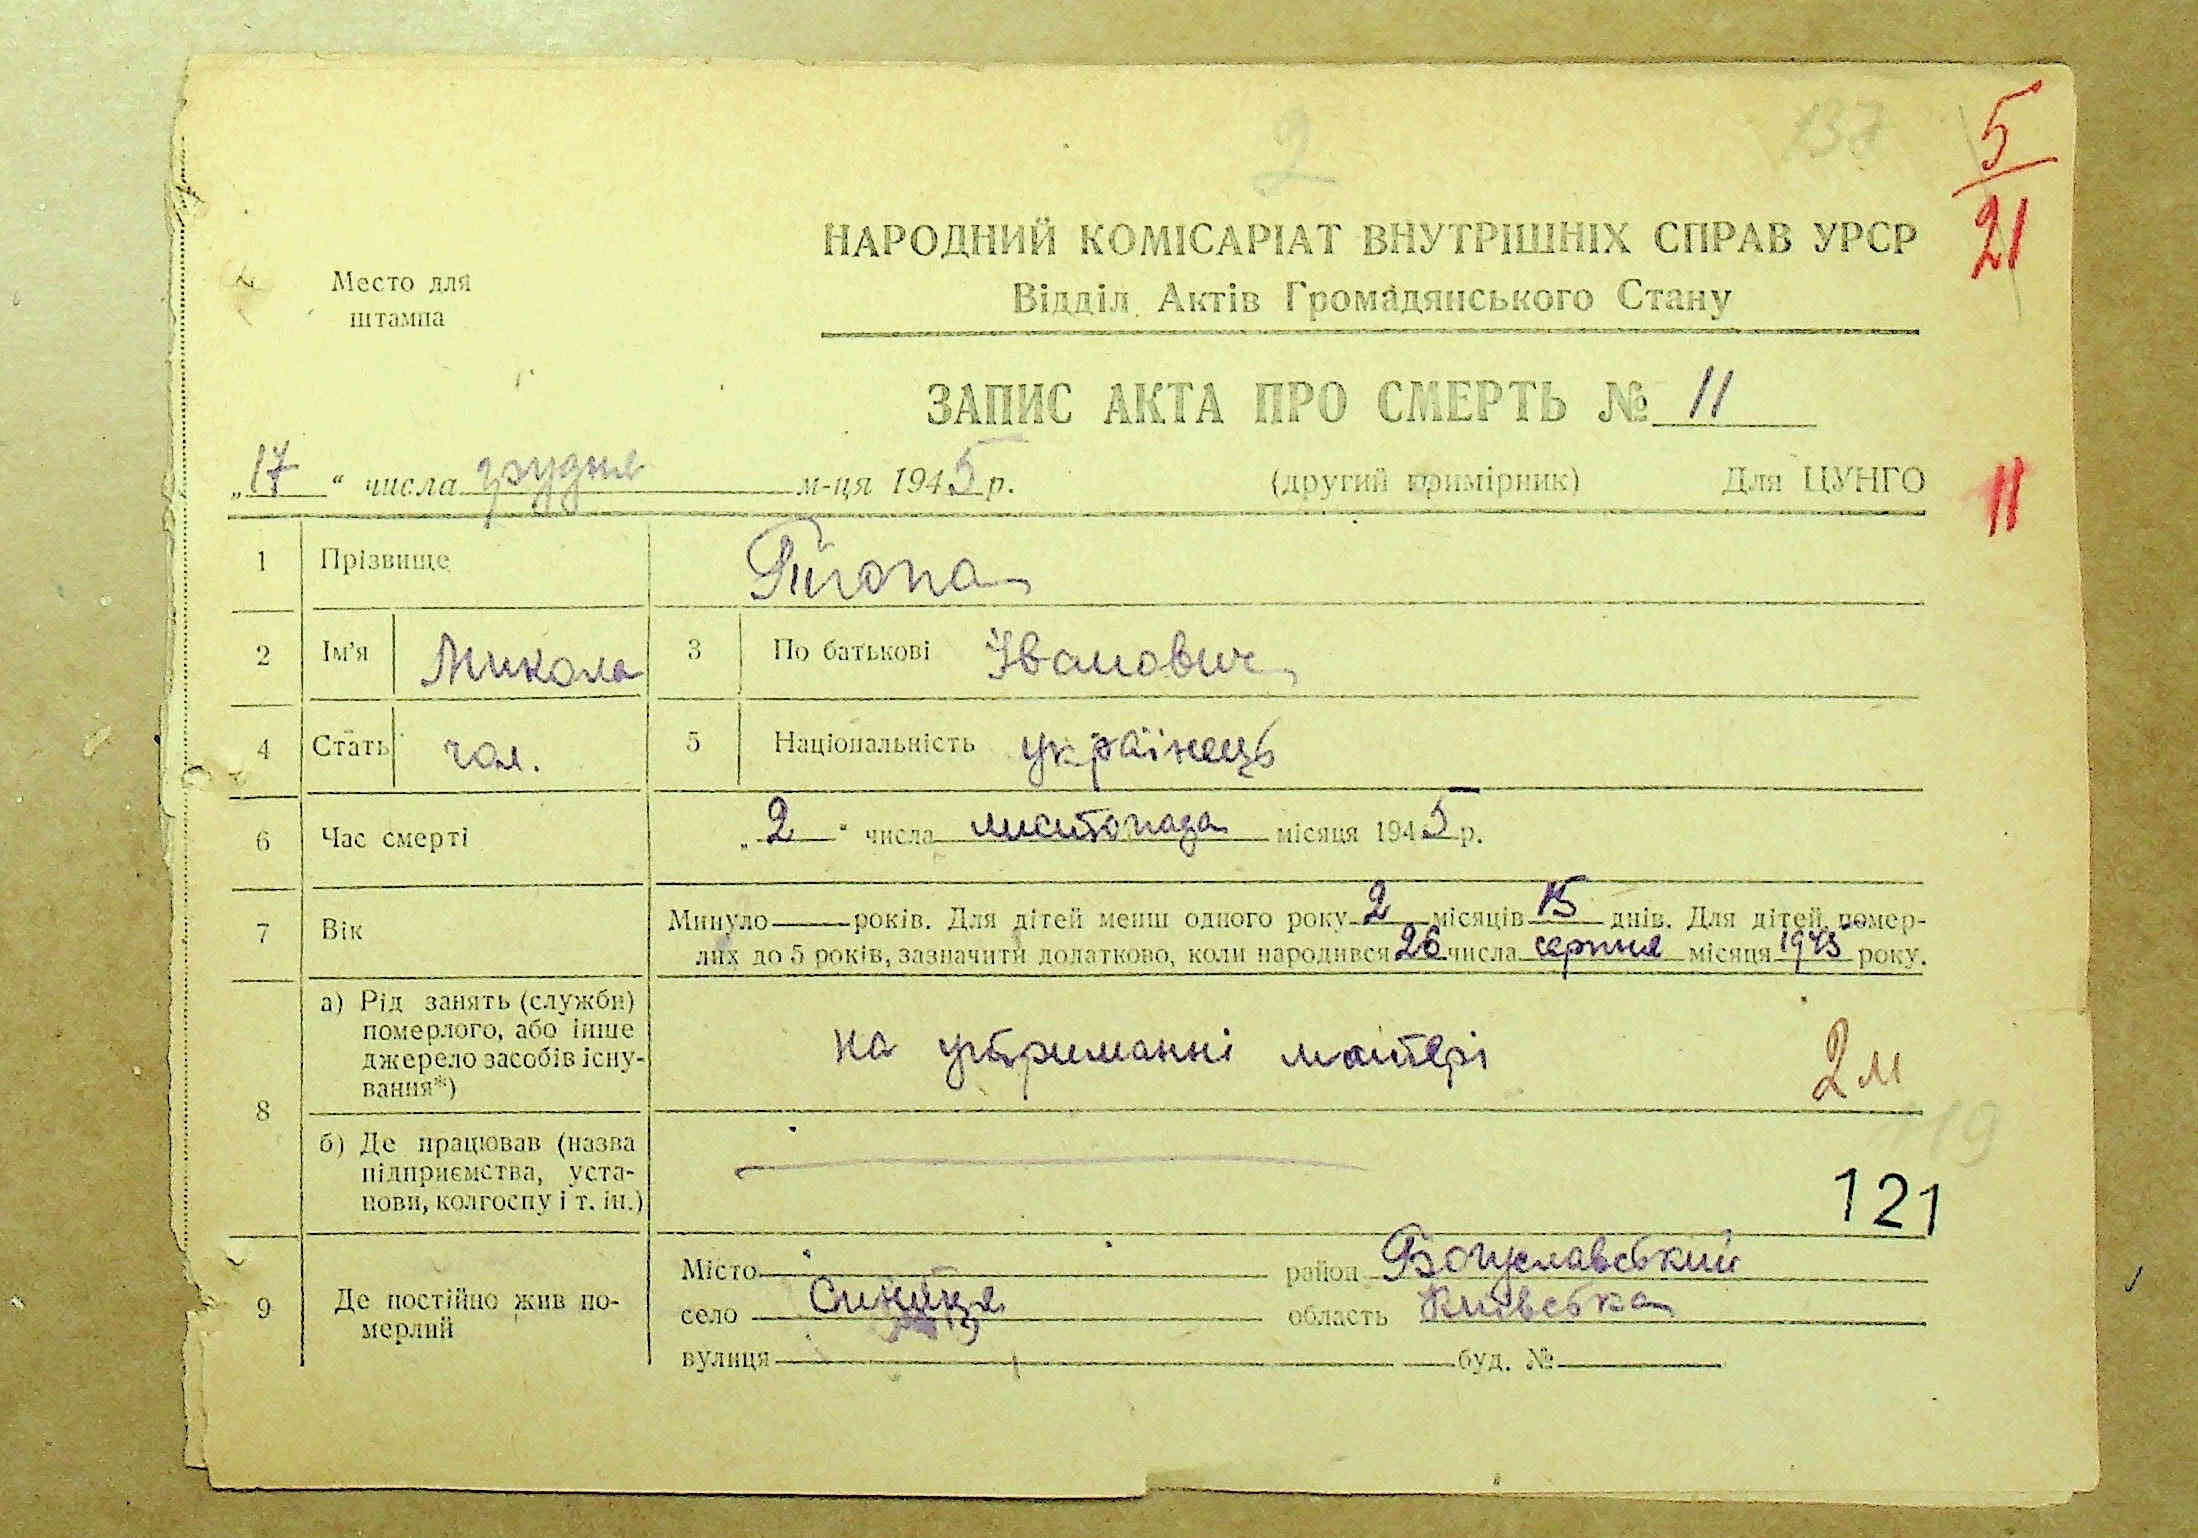 2
137
5
21
НАРОДНИЙ КОМІСАРІАТ ВНУТРІШНІХ СПРАВ УРСР
Место для
штампа
Відділ Актів Громадянського Стану
ЗАПИС АКТА ПРО СМЕРТЬ № 11
„17“ числа грудня м-ця 1945 р. (другий примірник) Для ЦУНГО
11
1 Прізвище
2 Ім'я Микола 3 По батькові Іванович
4 Стать чол. 5 Національність українець
6 Час смерті „2“ числа листопада місяця 1945 р.
7 Вік Минуло — років. Для дітей менш одного року 2 місяців 15 днів. Для дітей, помер-
лих до 5 років, зазначити додатково, коли народився 26 числа серпня місяця 1945 року.
8 а) Рід занять (служби)
померлого, або інше
джерело засобів існу-
вання*) на утриманні матері 2 м
119
б) Де працював (назва
підприємства, уста-
нови, колгоспу і т. ін.)
121
9 Де постійно жив по-
мерлий
Місто район Богуславський
село Синиця область Київська
вулиця буд. №